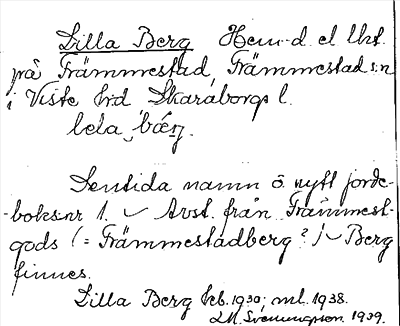 Lilla Berg Hem-d. el. lht.
på Främmestad, Främmestad s:n
i Viste hrd Skaraborgs l.
lela bærj.
Sentida namn å nytt jorde-
boksnr 1. ~ Avst. från Främmest-
gods (= Främmestadberg? ) ~ Berg
finnes.
Lilla Berg heb. 1930; ml. 1938.
Svenungsson. 1939.